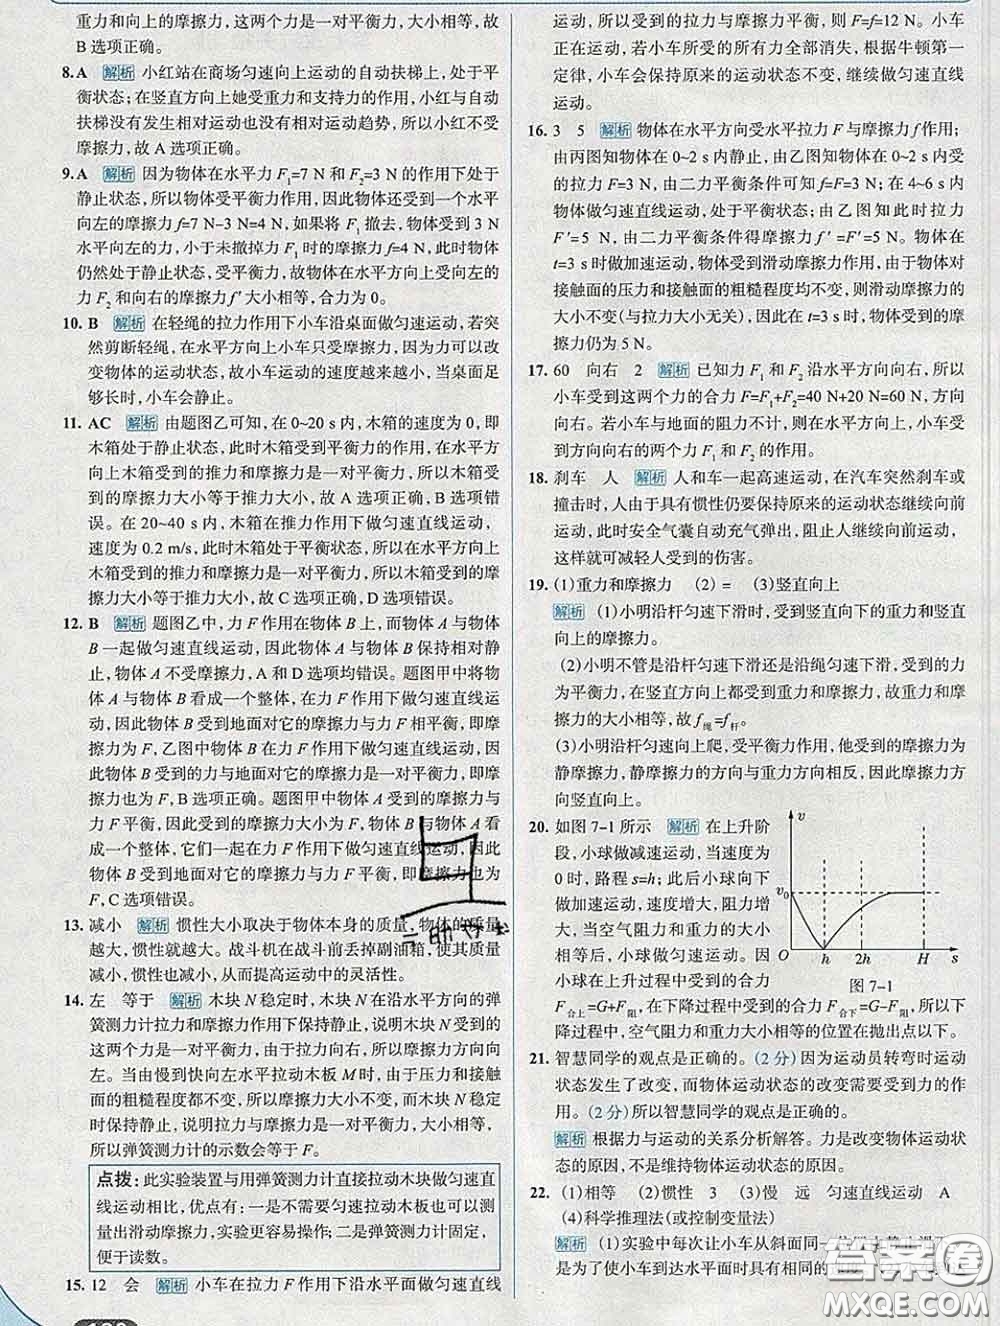 重力和向上的摩擦力，这两个力是一对平衡力，大小相等，故
B 选项正确。
8. A 解析 小红站在商场匀速向上运动的自动扶梯上，处于平
衡状态；在竖直方向上她受重力和支持力的作用，小红与自动
扶梯没有发生相对运动也没有相对运动趋势，所以小红不受
摩擦力，故 A 选项正确。
9. A 解析 因为物体在水平力 F₁=7 N 和 F₂=3 N 的作用下处于
静止状态，所以物体受平衡力作用，因此物体还受到一个水平
向左的力的摩擦力 f=7 N-3 N=4 N，如果将 F₁ 撤去，物体受到 3 N
水平向左的力，小于未撤掉力 F₁ 时的摩擦力 f=4 N，此时物体
仍然处于静止状态，受平衡力，故物体在水平方向上受向左的
力 F₂ 和向右的摩擦力 f′ 大小相等，合力为 0。
10. B 解析 在轻绳的拉力作用下小车沿桌面做匀速运动，若突
然剪断轻绳，在水平方向上小车只受摩擦力，因为力可以改
变物体的运动状态，故小车运动的速度越来越小，当桌面足
够长时，小车会静止。
11. AC 解析 由题图乙可知，在 0~20 s 内，木箱的速度为 0，即
木箱处于静止状态，此时木箱受到平衡力的作用，在水平方
向上木箱受到的推力和摩擦力是一对平衡力，所以木箱受
到的摩擦力大小等于推力大小，故 A 选项正确，B 选项错
误。在 20~40 s 内，木箱在推力作用下做匀速直线运动，
速度为 0.2 m/s，此时木箱处于平衡状态，所以在水平方向上
木箱受到的推力和摩擦力是一对平衡力，所以木箱受到的
摩擦力大小等于推力大小，故 C 选项正确，D 选项错误。
12. B 解析 题图乙中，力 F 作用在物体 B 上，而物体 A 与物体
B 一起做匀速直线运动，因此物体 A 与物体 B 保持相对静
止，物体 A 不受摩擦力，A 和 D 选项均错误。题图甲中将物
体 A 与物体 B 看成一个整体，在力 F 作用下做匀速直线运
动，因此物体 B 受到地面对它的摩擦力与力 F 相平衡，即摩
擦力为 F，乙图中物体 B 在力 F 作用下做匀速直线运动，因
此物体 B 受到的力与地面对它的摩擦力是一对平衡力，即摩
擦力也为 F，B 选项正确。题图甲中物体 A 受到的摩擦力与
力 F 平衡，因此受到的摩擦力大小为 F，物体 B 与物体 A 看
成一个整体，它们一起在力 F 作用下做匀速直线运动，因此
物体 B 受到的摩擦力与力 F 平衡，即摩擦力也为
F，C 选项错误。
13. 减小 解析 惯性大小取决于物体本身的质量，物体的质量
越大，惯性就越大。战斗机在战斗前丢掉副油箱，使其质量
减小，惯性减小，从而提高运动中的灵活性。
14. 左 等于 解析 木块 N 稳定时，木块 N 在沿水平方向的弹
簧测力计拉力和摩擦力作用下保持静止，说明木块 N 受到的
这两个力是一对平衡力，由于拉力向右，所以摩擦力方向向
左。当由慢到快向左水平拉动木板 M 时，由于压力和接触
面的粗糙程度都不变，所以摩擦力大小不变，且木块稳定
时保持静止，说明拉力与摩擦力是一对平衡力，大小相等，
所以弹簧测力计的示数会等于 F。
点拨：此实验装置与用弹簧测力计直接拉动木块做匀速直
线运动相比，优点有：一是不需要匀速拉动木板也可以测
量出滑动摩擦力，实验更容易操作；二是弹簧测力计固定，
便于读数。
15. 12 会 解析 小车在拉力 F 作用下沿水平面做匀速直线
运动，所以受到的拉力与摩擦力平衡，即 F=f=12 N。小车
正在运动，若小车所受的所有力全部消失，根据牛顿第一
定律，小车会保持原来的运动状态不变，继续做匀速直线
运动。
16. 3 5 解析 物体在水平方向受水平拉力 F 与摩擦力 f 作用；
由丙图知物体在 0~2 s 内静止，由乙图知物体在 0~2 s 内受
的拉力 F=3 N，由二力平衡条件可知 f=F=3 N。在 4~6 s 内
物体做匀速直线运动，处于平衡状态；由乙图知此时拉力
F′=5 N，由二力平衡条件得摩擦力 f′=F′=5 N。物体在
t=3 s 时做加速运动，物体受到滑动摩擦力作用，由于物体对
接触面的压力和接触面的粗糙程度均不变，则滑动摩擦力的
大小不变（与拉力大小无关），因此在 t=3 s 时，物体受的摩
擦力仍为 5 N。
17. 60 向右 2 解析 已知力 F₁ 和 F₂ 沿水平方向向右，所以
小车受到这两个力的合力 F=F₁+F₂=40 N+20 N=60 N，方向
向右。若小车与地面的阻力不计，则在水平方向上，小车受
到方向向右的两个力 F₁ 和 F₂ 的作用。
18. 刹车 人 解析 人和车一起高速运动，在汽车突然刹车或
撞击时，人由于具有惯性仍要保持原来的运动状态继续向前
运动，此时安全气囊自动充气弹出，阻止人继续向前运动，
这样就可减轻人受到的伤害。
19. (1)重力和摩擦力 (2) = (3)竖直向上
解析 (1)小明沿杆匀速下滑时，受到竖直向下的重力和竖直
向上的摩擦力。
(2)小明不管是沿杆匀速下滑还是沿绳匀速下滑，受到的力
为平衡力，在竖直方向上都受到重力和摩擦力，故重力和摩
擦力的大小相等，故 f绳=f杆。
(3)小明沿杆匀速向上爬，受平衡力作用，他受到的摩擦力为
静摩擦力，静摩擦力的方向与重力方向相反，因此摩擦力方
向竖直向上。
20. 如图 7-1 所示 解析 在上升阶
段，小球做减速运动，当速度为
0 时，路程 s=h；此后小球向下
做加速运动，速度不断增
大，当空气阻力和重力的大小
相等后，小球做匀速运动。因
小球在上升过程中受到的合力
F合上=G+F阻，在下降过程中受到的合力 F合下=G-F阻，所以下
降过程中，空气阻力和重力大小相等的位置在抛出点以下。
v
v₀
O h 2h H s
图 7-1
21. 智慧同学的观点是正确的。(2 分) 因为运动员转弯时运动
状态发生了改变，而物体运动状态的改变需要受到力的作
用。(2 分)所以智慧同学的观点是正确的。
解析 根据力与运动的关系分析解答。力是改变物体运动状
态的原因，不是维持物体运动状态的原因。
22. (1)相等 (2)惯性 3 (3)慢 远 匀速直线运动 A
(4)科学推理法(或控制变量法)
解析 (1)实验中每次让小车从斜面同一
是为了使小车到达水平面时具有相同的
答案圈
MXQE.COM